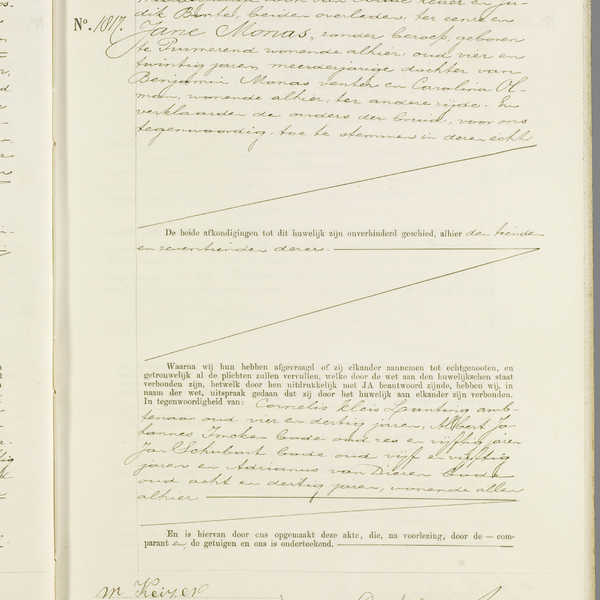 dik Bonte, beiden overleden, ter eenre en
No. 1817. Jane Monas, zonder beroep, geboren
te Purmerend wonende alhier, oud vier en
twintig jaren, meerderjarige dochter van
Benjamin Monas venter en Carolina Ol-
man, wonende alhier, ter andere zijde. En
verklaarden de ouders der bruid, voor ons
tegenwoordig, toe te stemmen in deze echt
De beide afkondigingen tot dit huwelijk zijn onverhinderd geschied, alhier den tienden
en zeventienden dezer.
Waarna wij hun hebben afgevraagd of zij elkander aannemen tot echtgenooten, en
getrouwelijk al de plichten zullen vervullen, welke door de wet aan den huwelijkschen staat
verbonden zijn, hetwelk door hen uitdrukkelijk met JA beantwoord zijnde, hebben wij, in
naam der wet, uitspraak gedaan dat zij door het huwelijk aan elkander zijn verbonden.
In tegenwoordigheid van: Cornelis Kleis Bunting amb-
tenaar oud vier en dertig jaren, Albert Jo-
hannes Imcke bode oud zes en vijftig jaren
Jan Schubart bode oud vijf en vijftig
jaren en Adrianus van Dieren bode
oud acht en dertig jaren, wonende allen
alhier
En is hiervan door ons opgemaakt deze akte, die, na voorlezing, door de — com-
parant en de getuigen en ons is onderteekend.
M Keizer